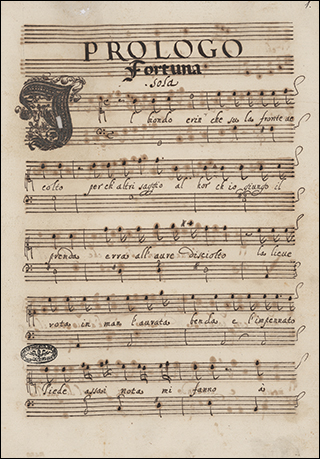 1.
PROLOGO
Fortuna
sola
l biondo crin che su la fronte ac
colto perch'altri saggio al hor ch'io giungo il
prenda erra all'aure disciolto la lieue
rota in man l'aurata benda e l'impennato
piede assai nota mi fanno à